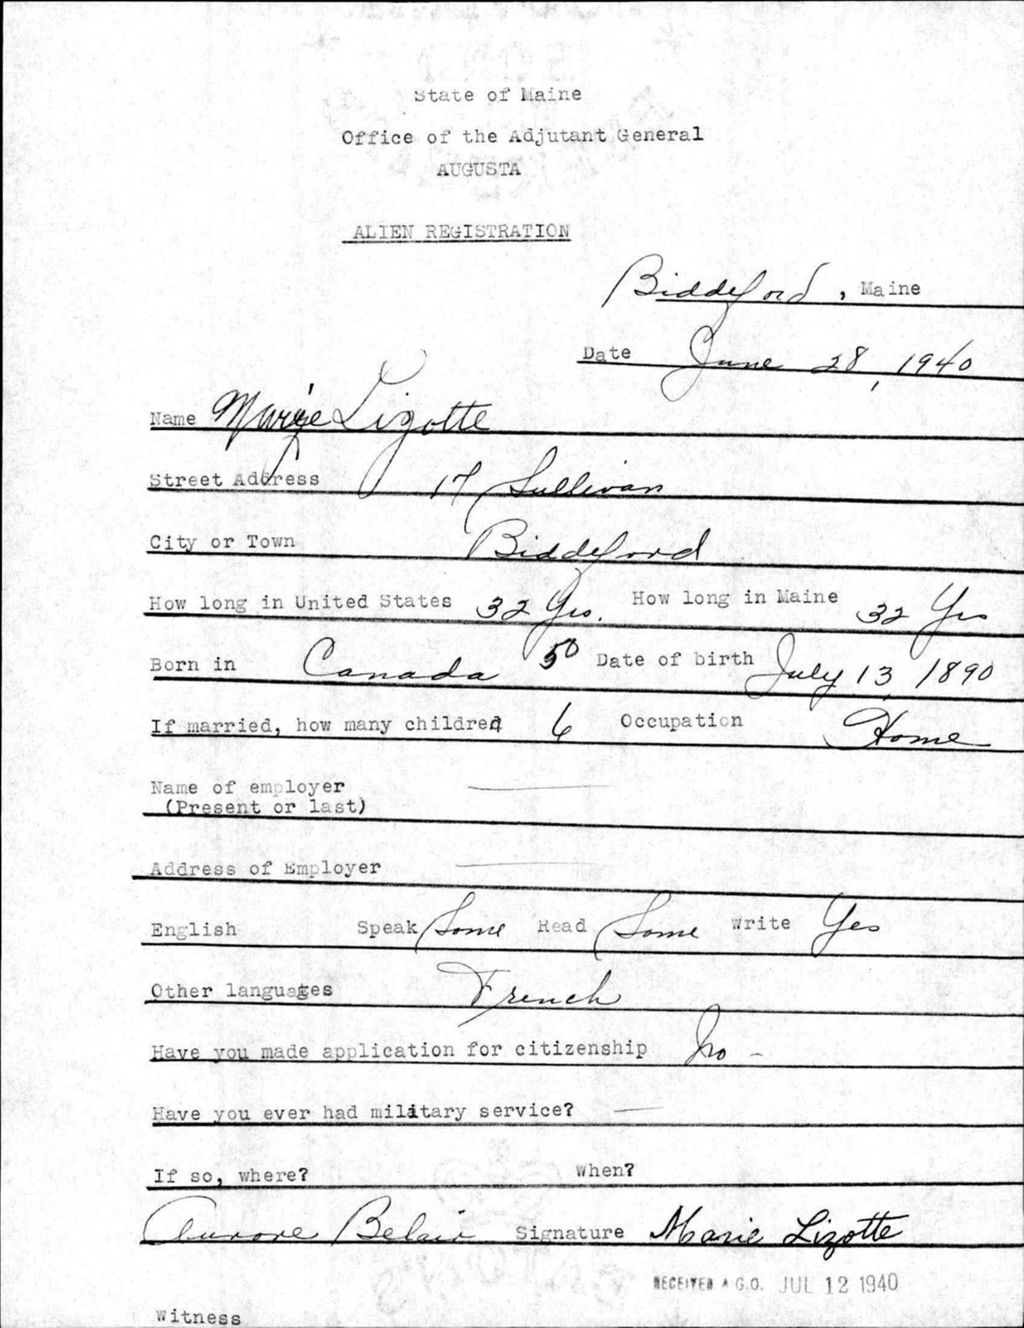 State of Maine
Office of the Adjutant General
AUGUSTA
ALIEN REGISTRATION
Biddeford, Maine
Date June 28, 1940
Name Marie Lizotte
Street Address 17 Sullivan
City or Town Biddeford
How long in United States 32 Yrs. How long in Maine 32 Yrs
Born in Canada 50 Date of birth July 13, 1890
If married, how many children 6 Occupation Home
Name of employer
(Present or last)
Address of Employer
English Speak Some Read Some Write Yes
Other languages French
Have you made application for citizenship No -
Have you ever had military service? —
If so, where? When?
Aurore Belair Signature Marie Lizotte
RECEIVED A.G.O. JUL 12 1940
Witness